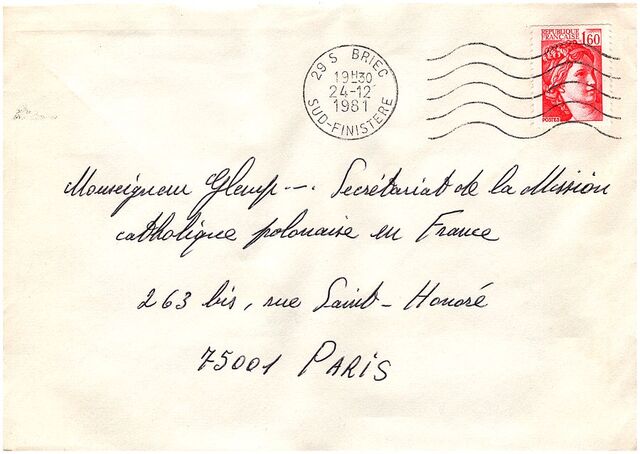 29 S BRIEC
19H30
24-12
1981
SUD-FINISTERE
REPUBLIQUE
FRANÇAISE
1,60
POSTES
Monseigneur Glemp -- Secrétariat de la Mission
catholique polonaise en France
263 bis, rue Saint-Honoré
75001 PARIS